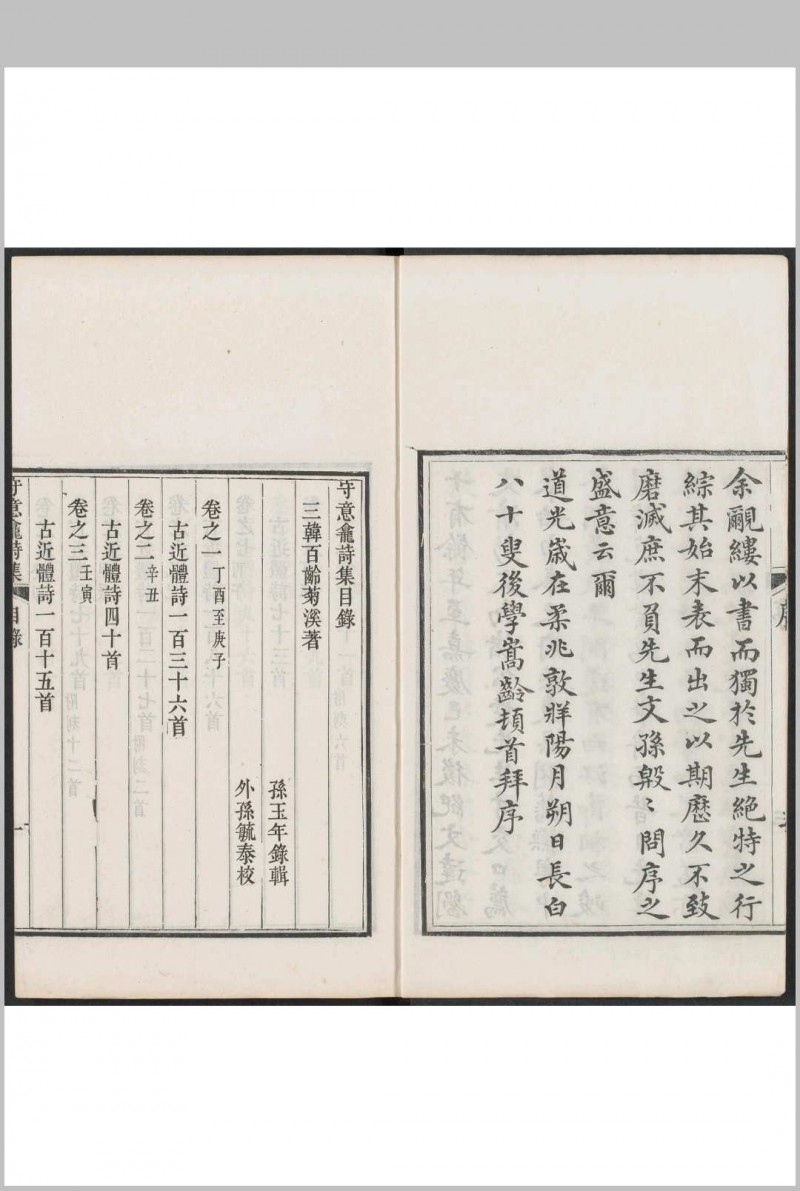 余覼縷以書而獨於先生絶特之行
綜其始末表而出之以期歷久不致
磨滅庶不負先生文孫㲄〻問序之
盛意云爾
道光歲在柔兆敦牂陽月朔日長白
八十叟後學嵩齡頓首拜序
守意龕詩集目錄
三韓百齡菊溪著
孫玉年錄輯
外孫毓泰校
卷之一丁酉至庚子
古近體詩一百三十六首
卷之二辛丑
古近體詩四十首
卷之三壬寅
古近體詩一百十五首
守意龕詩集
目錄
一